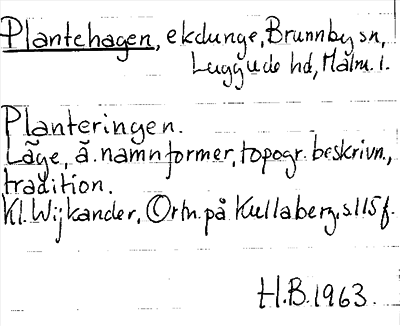 Plantehagen, ekdunge, Brunnby sn,
Luggude hd, Malm. l.
Planteringen.
Läge, ä. namnformer, topogr. beskrivn.,
tradition.
Kl. Wijkander, Ortn. på Kullaberg, s. 115 f.
H.B. 1963.